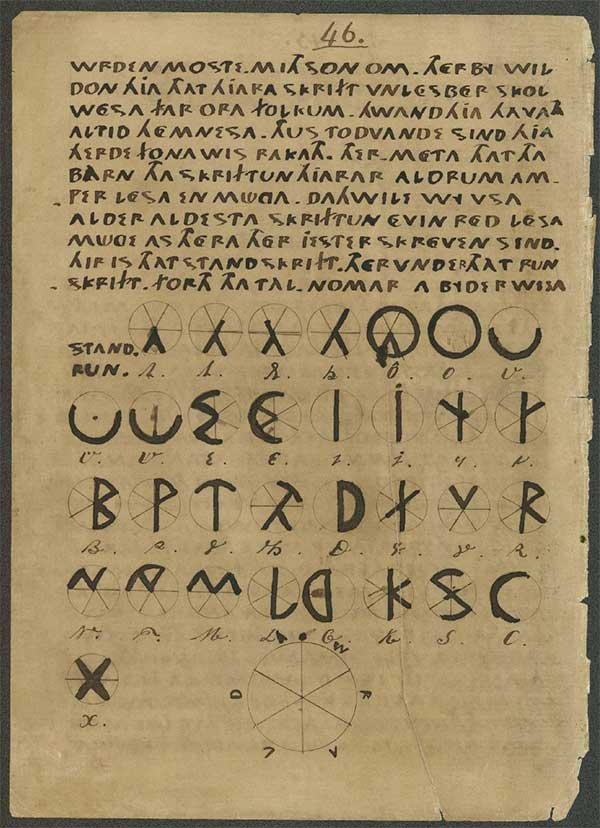 WRDEN MOSTE. MITH SON OM. THERBY WIL
DON HIA THAT HIARA SKRIFT VNLESBER SKOL
WESA FAR ORA FOLKUM. HWAND HIA HAVATH
ALTID HEMNESA. THUS TODVANDE SIND HIA
HERDE FONA WIS RAKATH. THER-META THAT THA
BARN THA SKRIFTUN HIARAR ALDRUM AM-
PER LESA EN MUGA. DAHWILE WY VSA
ALDER ALDESTA SKRIFTUN EVIN RED LESA
MUGE AS THERA THER IESTER SKREVEN SIND.
HIR IS THAT STANDSKRIFT. THERVNDER THAT RUN
SKRIFT. FORTH THA TAL-NOMAR A BYDER WISA
46.
STAND. A A A A O O U
RUN. A. A. A. A. O. O. U.
U U E E I J
U. U. E. E. I. J.
B P T TH D F V R
B. P. T. Th. D. F. V. R.
N NG M L G K S C
N. M. L. G. K. S. C.
X
X.
W R A L D A